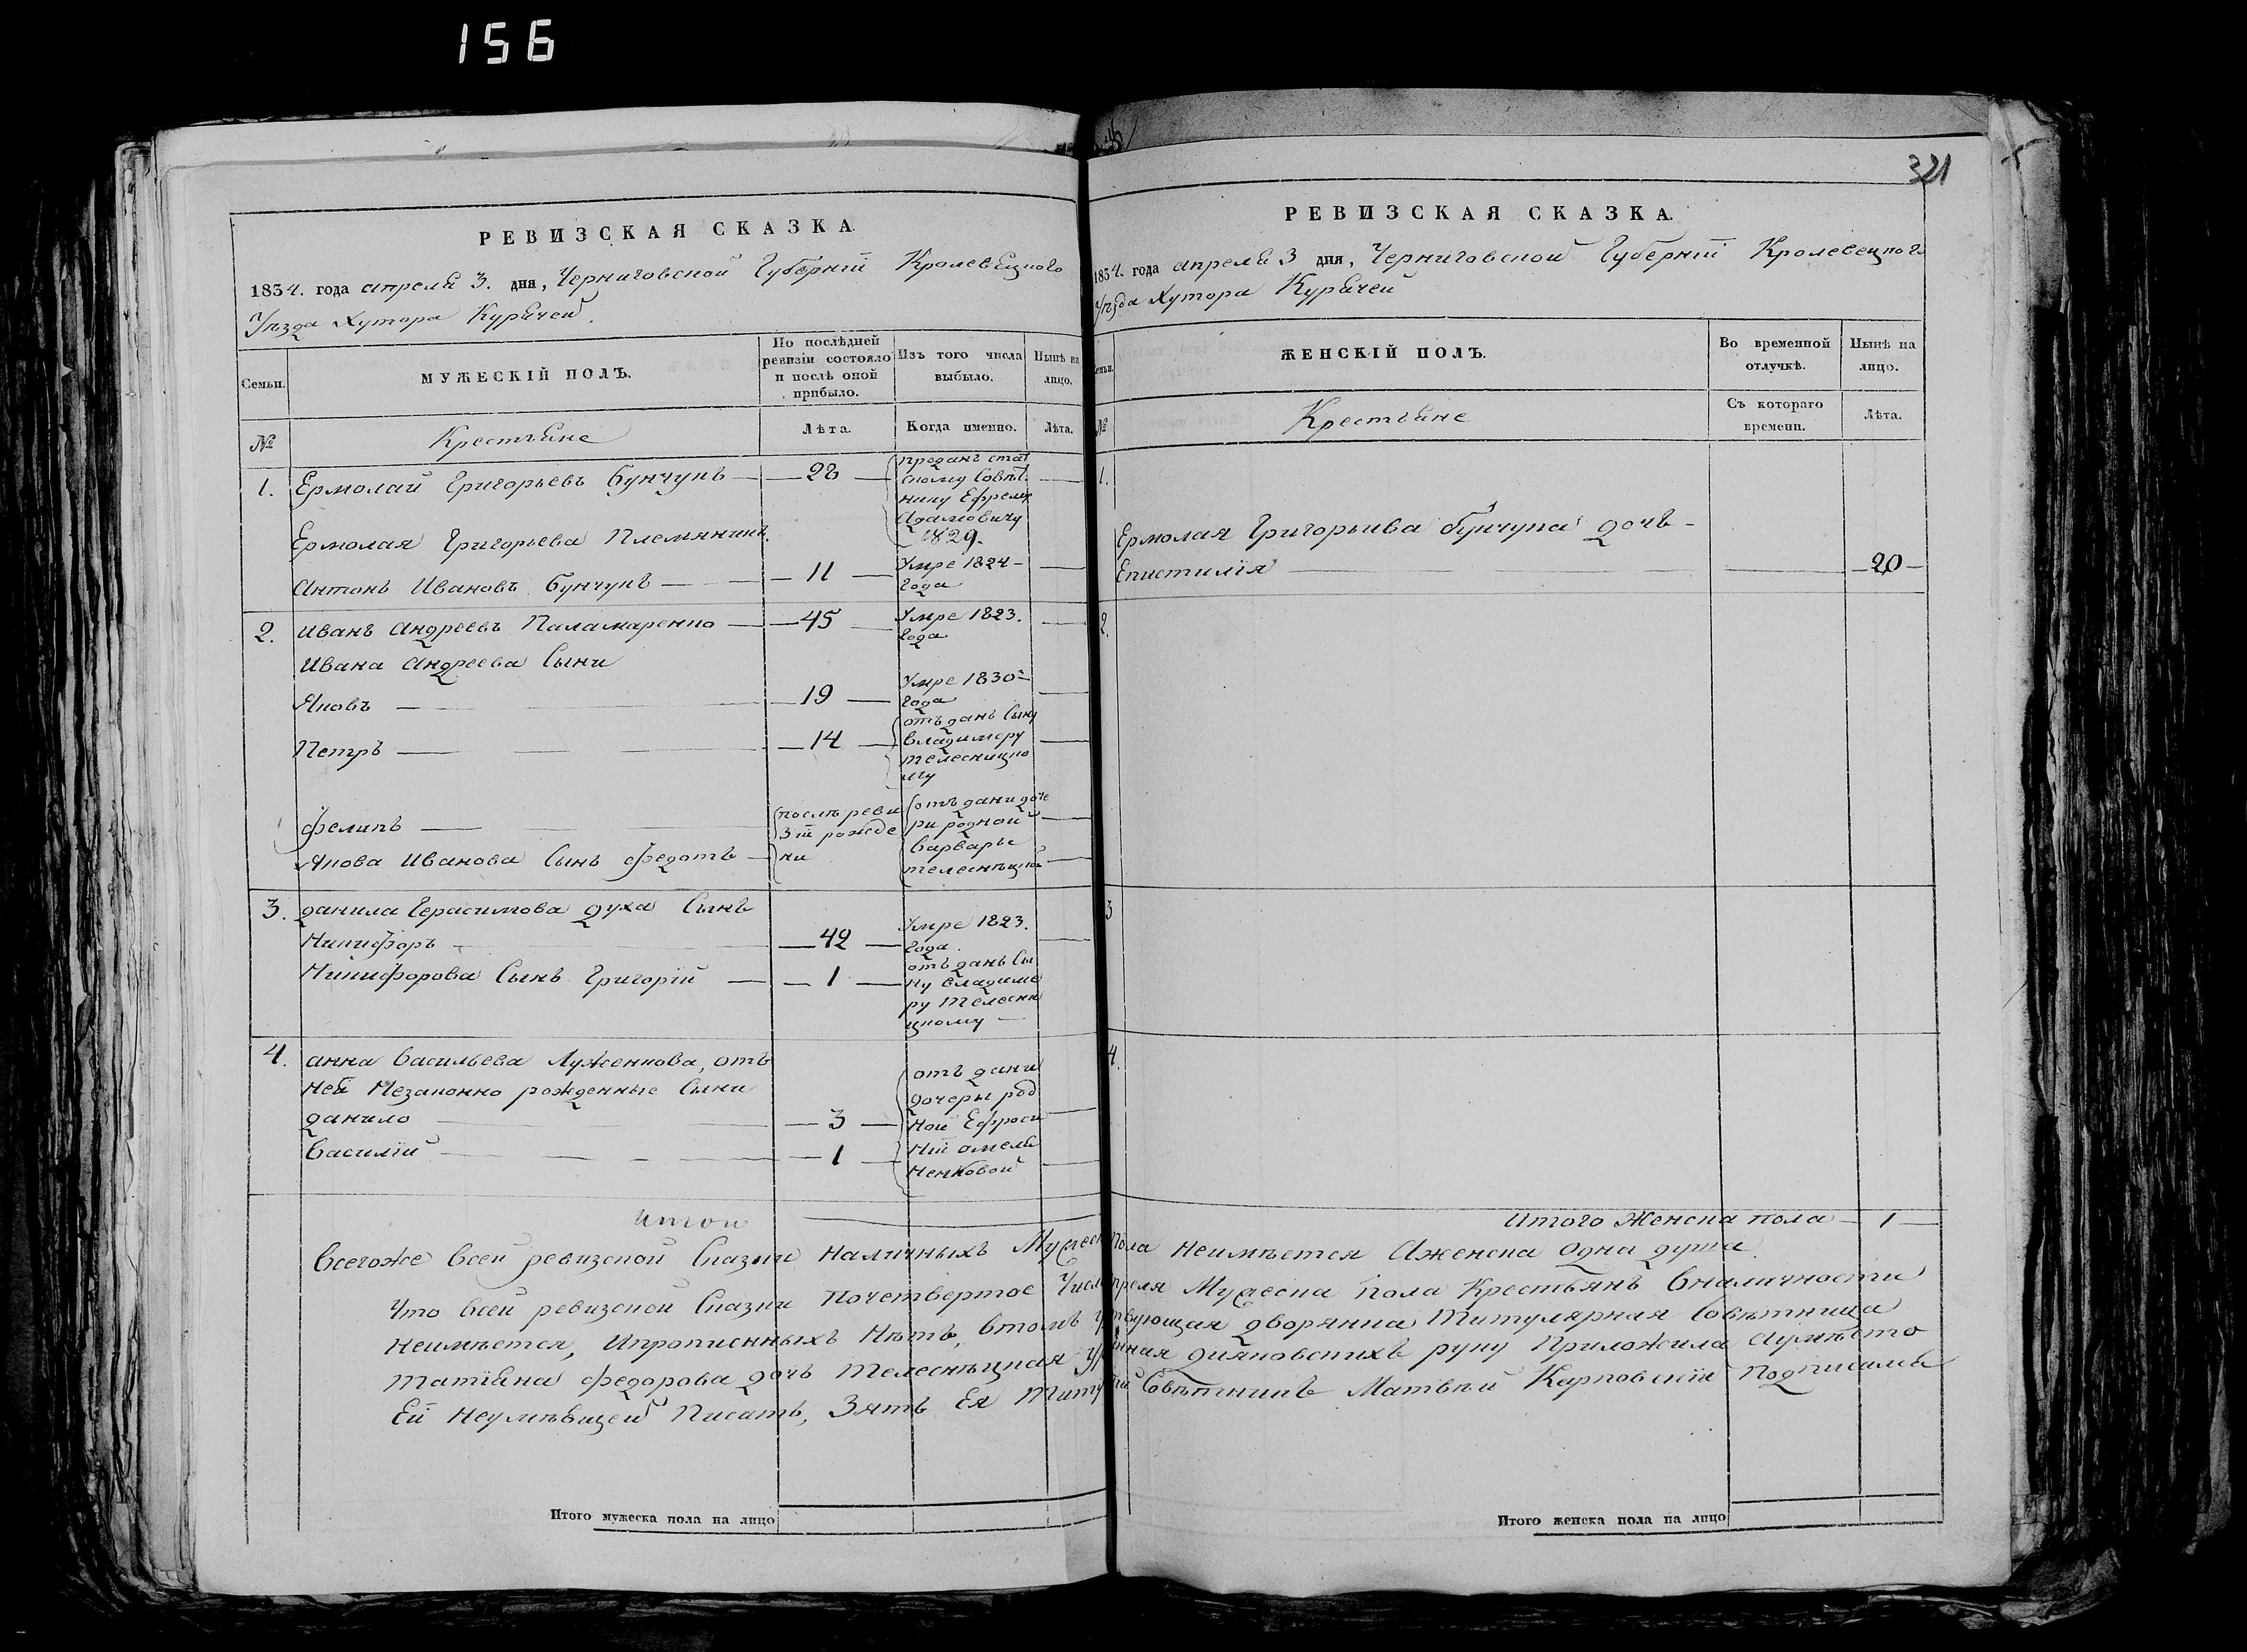 156
РЕВИЗСКАЯ СКАЗКА.
1834. года апреля 3. дня, Черниговской Губернїи Кролевецкого
Уѣзда Хутора Курячей.
Семьи.
МУЖЕСКІЙ ПОЛЪ.
По послѣдней
ревизіи состояло
и послѣ оной
прибыло.
Изъ того числа
выбыло.
Нынѣ на
лицо.
№
Крестьяне
Лѣта.
Когда именно.
Лѣта.
1. Ермолай Григорьевъ Бунчукъ — 28 — проданъ стат
скому Совѣт
нику Ефрему
Адамовичу
1829.
Ермолая Григорьева Племянникъ
Антонъ Ивановъ Бунчукъ — 11 — Умре 1824
года
2. Иванъ Андреевъ Паламаренко — 45 Умре 1823.
года
Ивана Андреева Сыни
Яковъ — 19 — Умре 1830
года
Петръ — 14 — отъданъ Сыну
Владимеру
Телесницко
му
Филипъ — послѣ реви
зїи рожде
ни
отъдани доче
ри родной
Варваръ
Телеснѣцкой
Якова Иванова Сынъ Федотъ
3. Данила Герасимова Духа Сынъ
Никифоръ — 42 — Умре 1823.
года.
Никифорова Сынъ Григорїй — 1 — отъданъ Сы
ну Владиме
ру Телесни
цкому —
4. Анна Васильева Луженкова, отъ
ней Незаконно рожденные Сыни
Данило — 3 —
Василїй — 1 —
отъдани
дочеры род
ной Ефроси
нїи Омеля
ненковой
Итого
321
РЕВИЗСКАЯ СКАЗКА.
1834. года апреля 3 дня, Черниговской Губернїи Кролевецкого
Уѣзда Хутора Курячей
ЖЕНСКІЙ ПОЛЪ.
Во временной
отлучкѣ.
Нынѣ на
лицо.
№
Крестьяне
Съ котораго
времени.
Лѣта.
1.
Ермолая Григорьива Бунчука дочь —
Епистилїя — 20 —
2.
3
4.
Итого Женска пола — 1 —
Всегоже Всей ревизской Сказки Наличныхъ Мужеск пола неимѣется Аженска одна душа.
Что Всей ревизской Сказки Почетвертое Число апреля Мужеска пола Крестьянъ Вналичности
неимѣется, Ипрописнныхъ Нѣтъ, Втомъ дворянка Титулярная Совѣтница
Татїяна Федорова дочь Телеснѣцкая Дияковскихъ руку Приложила
Ей Неумѣющей Писать, Зять Ея Совѣтникъ Матвѣй Карповскїй Подписался
Итого мужеска пола на лицо
Итого женска пола на лицо